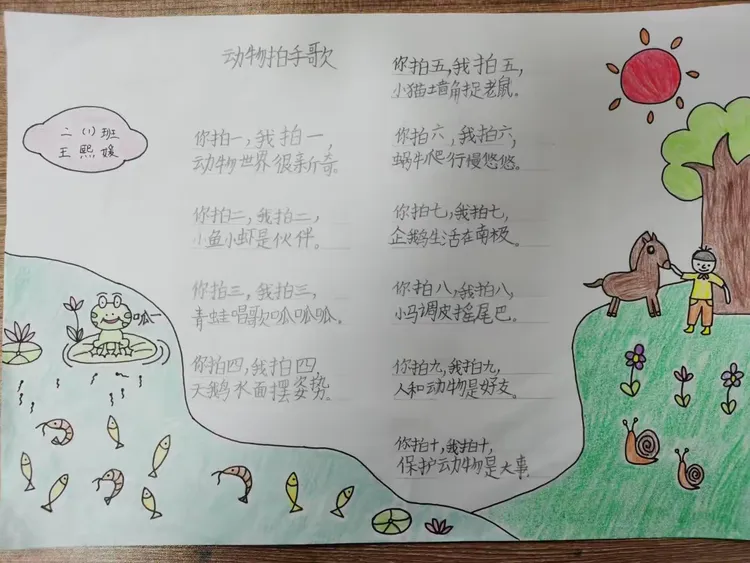 动物拍手歌
二(1)班
王熙媛
你拍一,我拍一,
动物世界很新奇。
你拍二,我拍二,
小鱼小虾是伙伴。
你拍三,我拍三,
青蛙唱歌呱呱呱。
你拍四,我拍四,
天鹅水面摆姿势。
你拍五,我拍五,
小猫墙角捉老鼠。
你拍六,我拍六,
蜗牛爬行慢悠悠。
你拍七,我拍七,
企鹅生活在南极。
你拍八,我拍八,
小马调皮摇尾巴。
你拍九,我拍九,
人和动物是好友。
你拍十,我拍十,
保护动物是大事
呱一